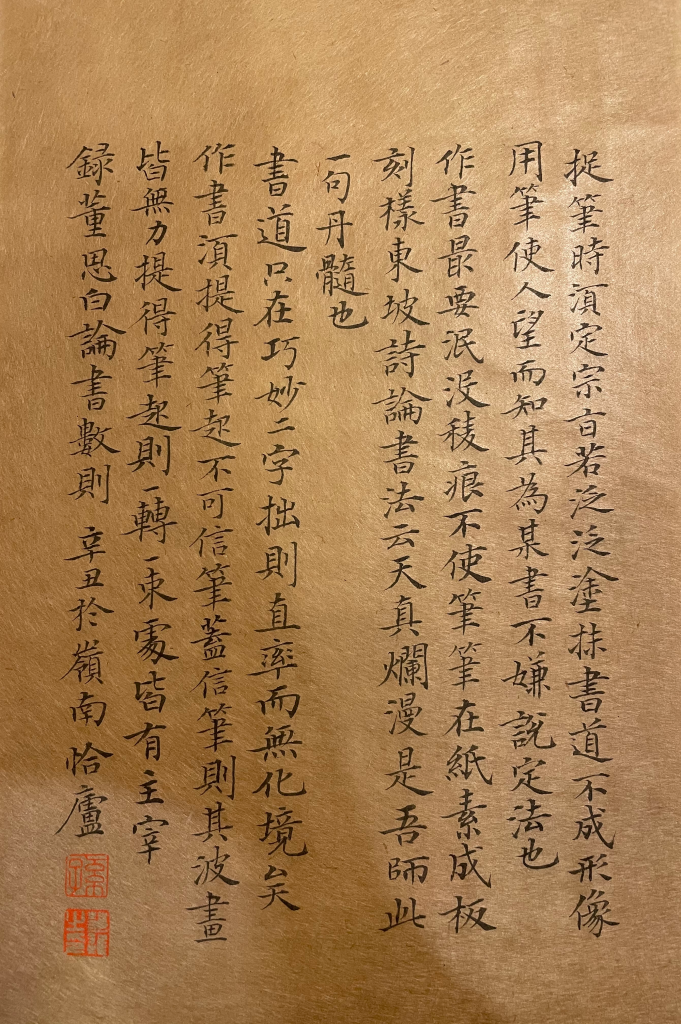 捉筆時湏定宗旨若泛泛塗抹書道不成形像
用筆使人望而知其為某書不嫌説定法也
作書最要泯没稜痕不使筆筆在紙素成板
刻樣東坡詩論書法云天真爛漫是吾師此
一句丹髓也
書道只在巧妙二字拙則直率而無化境矣
作書湏提得筆起不可信筆蓋信筆則其波畫
皆無力提得筆起則一轉一束處皆有主宰
録董思白論書數則 辛丑於嶺南恰廬